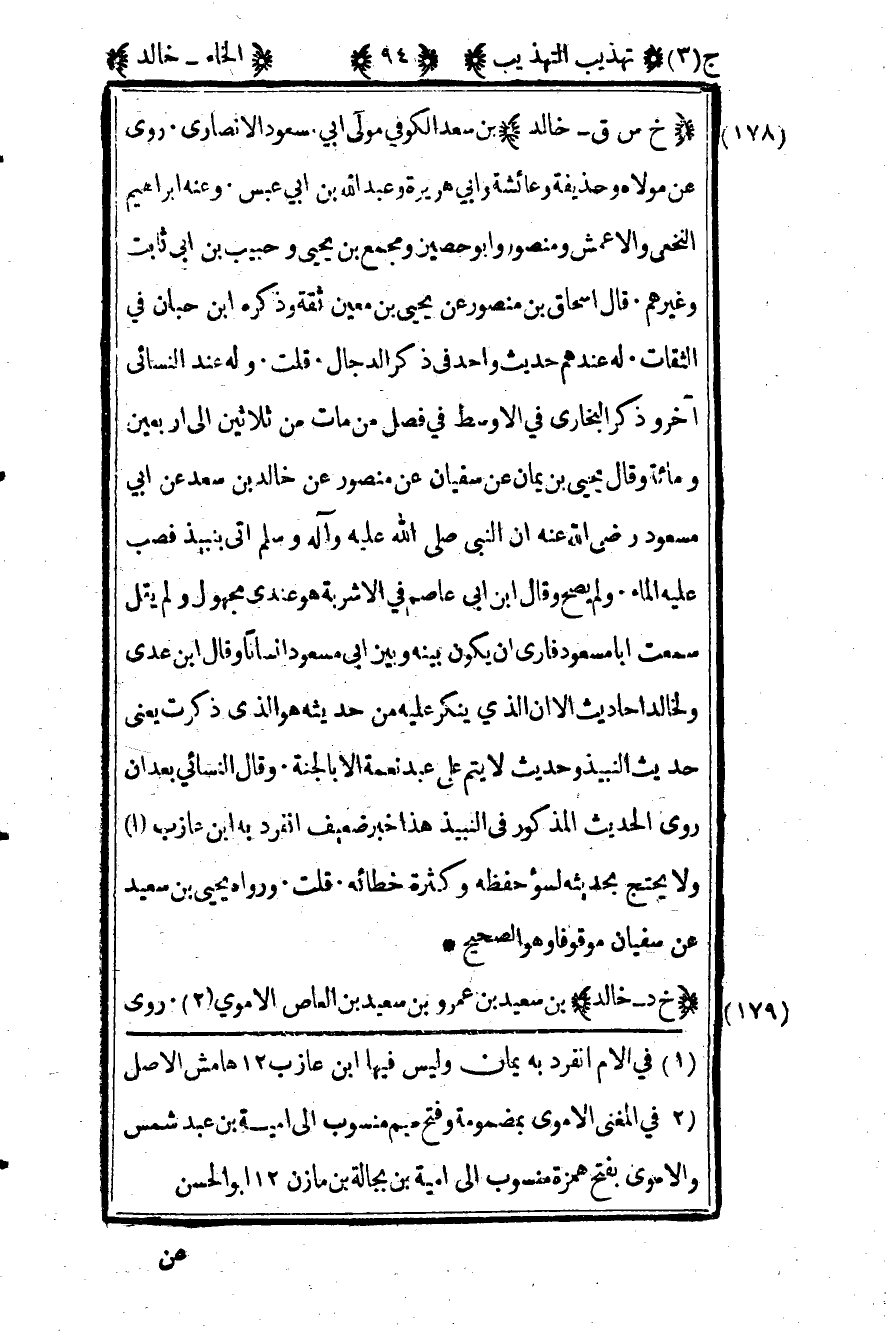 ج(٣) تهذيب التهذيب ﴿٩٤﴾ الخاء ـ خالد
(١٧٨) ﴿خ س ق ـ خالد﴾ بن سعد الكوفي مولى ابي مسعود الانصارى ٠ روى
عن مولاه وحذيفة وعائشة وابي هريرة وعبدالله بن ابي عبس ٠ وعنه ابراهيم
النخعى والاعمش ومنصور وابو حصين ومجمع بن يحيى و حبيب بن ابى ثابت
وغيرهم ٠ قال اسحاق بن منصور عن يحيى بن معين ثقة وذكره ابن حبان في
الثقات ٠ له عندهم حديث واحد فى ذكر الدجال ٠ قلت ٠ و له عند النسائى
آخر و ذكر البخارى في الاوسط في فصل من مات من ثلاثين الى اربعين
و مائة وقال يحيى بن يمان عن سفيان عن منصور عن خالد بن سعد عن ابي
مسعود رضى الله عنه ان النبى صلى الله عليه وآله و سلم اتى بنبيذ فصب
عليه الماء ٠ ولم يصح وقال ابن ابى عاصم في الاشربة هو عندى مجهول و لم يقل
سمعت ابا مسعود فارى ان يكون بينه وبين ابى مسعود انسانًا وقال ابن عدى
ولخالد احاديث الا ان الذي ينكر عليه من حديثه هو الذى ذكرت يعنى
حديث النبيذ وحديث لا يتم على عبد نعمة الا بالجنة ٠ وقال النسائي بعد ان
روى الحديث المذكور فى النبيذ هذا خبر ضعيف انفرد به ابن عازب (١)
ولا يحتج بحديثه لسوؤ حفظه وكثرة خطائه ٠ قلت ٠ ورواه يحيى بن سعيد
عن سفيان موقوفا وهو الصحيح *
(١٧٩) ﴿خ د ـ خالد﴾ بن سعيد بن عمرو بن سعيد بن العاص الاموي (٢) ٠ روى
(١) في الام انفرد به يمان وليس فيها ابن عازب ١٢ هامش الاصل
(٢ في المغنى الاموى بمضمومة وفتح ميم منسوب الى امية بن عبد شمس
والاموى بفتح همزة منسوب الى امية بن بجالة بن مازن ١٢ ابو الحسن
عن